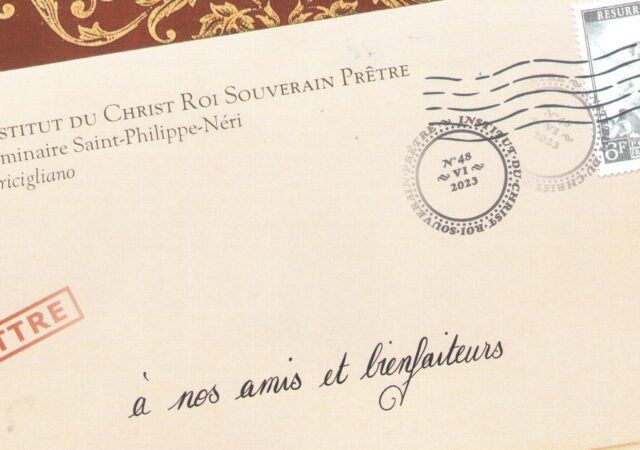 NSTITUT DU CHRIST ROI SOUVERAIN PRÊTRE
minaire Saint-Philippe-Néri
ricigliano
INSTITUT·DU·CHRIST·ROI·SOUVERAIN·PRÊTRE
N°48
VI
2023
N°48
VI
2023
RESURR
6F
TTRE
à nos amis et bienfaiteurs